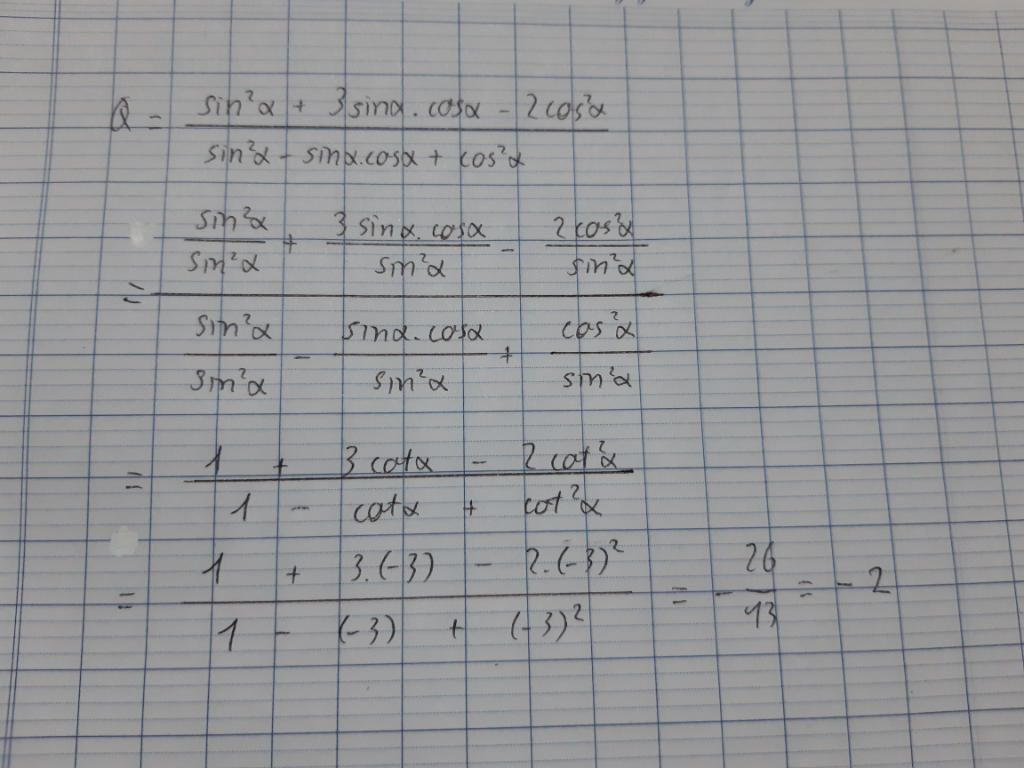 Q = (sin²α + 3sinα.cosα - 2cos²α) / (sin²α - sinα.cosα + cos²α)
= (sin²α/sin²α + 3sinα.cosα/sin²α - 2cos²α/sin²α) / (sin²α/sin²α - sinα.cosα/sin²α + cos²α/sin²α)
= (1 + 3cotα - 2cot²α) / (1 - cotα + cot²α)
= (1 + 3.(-3) - 2.(-3)²) / (1 - (-3) + (-3)²) = -26/13 = -2